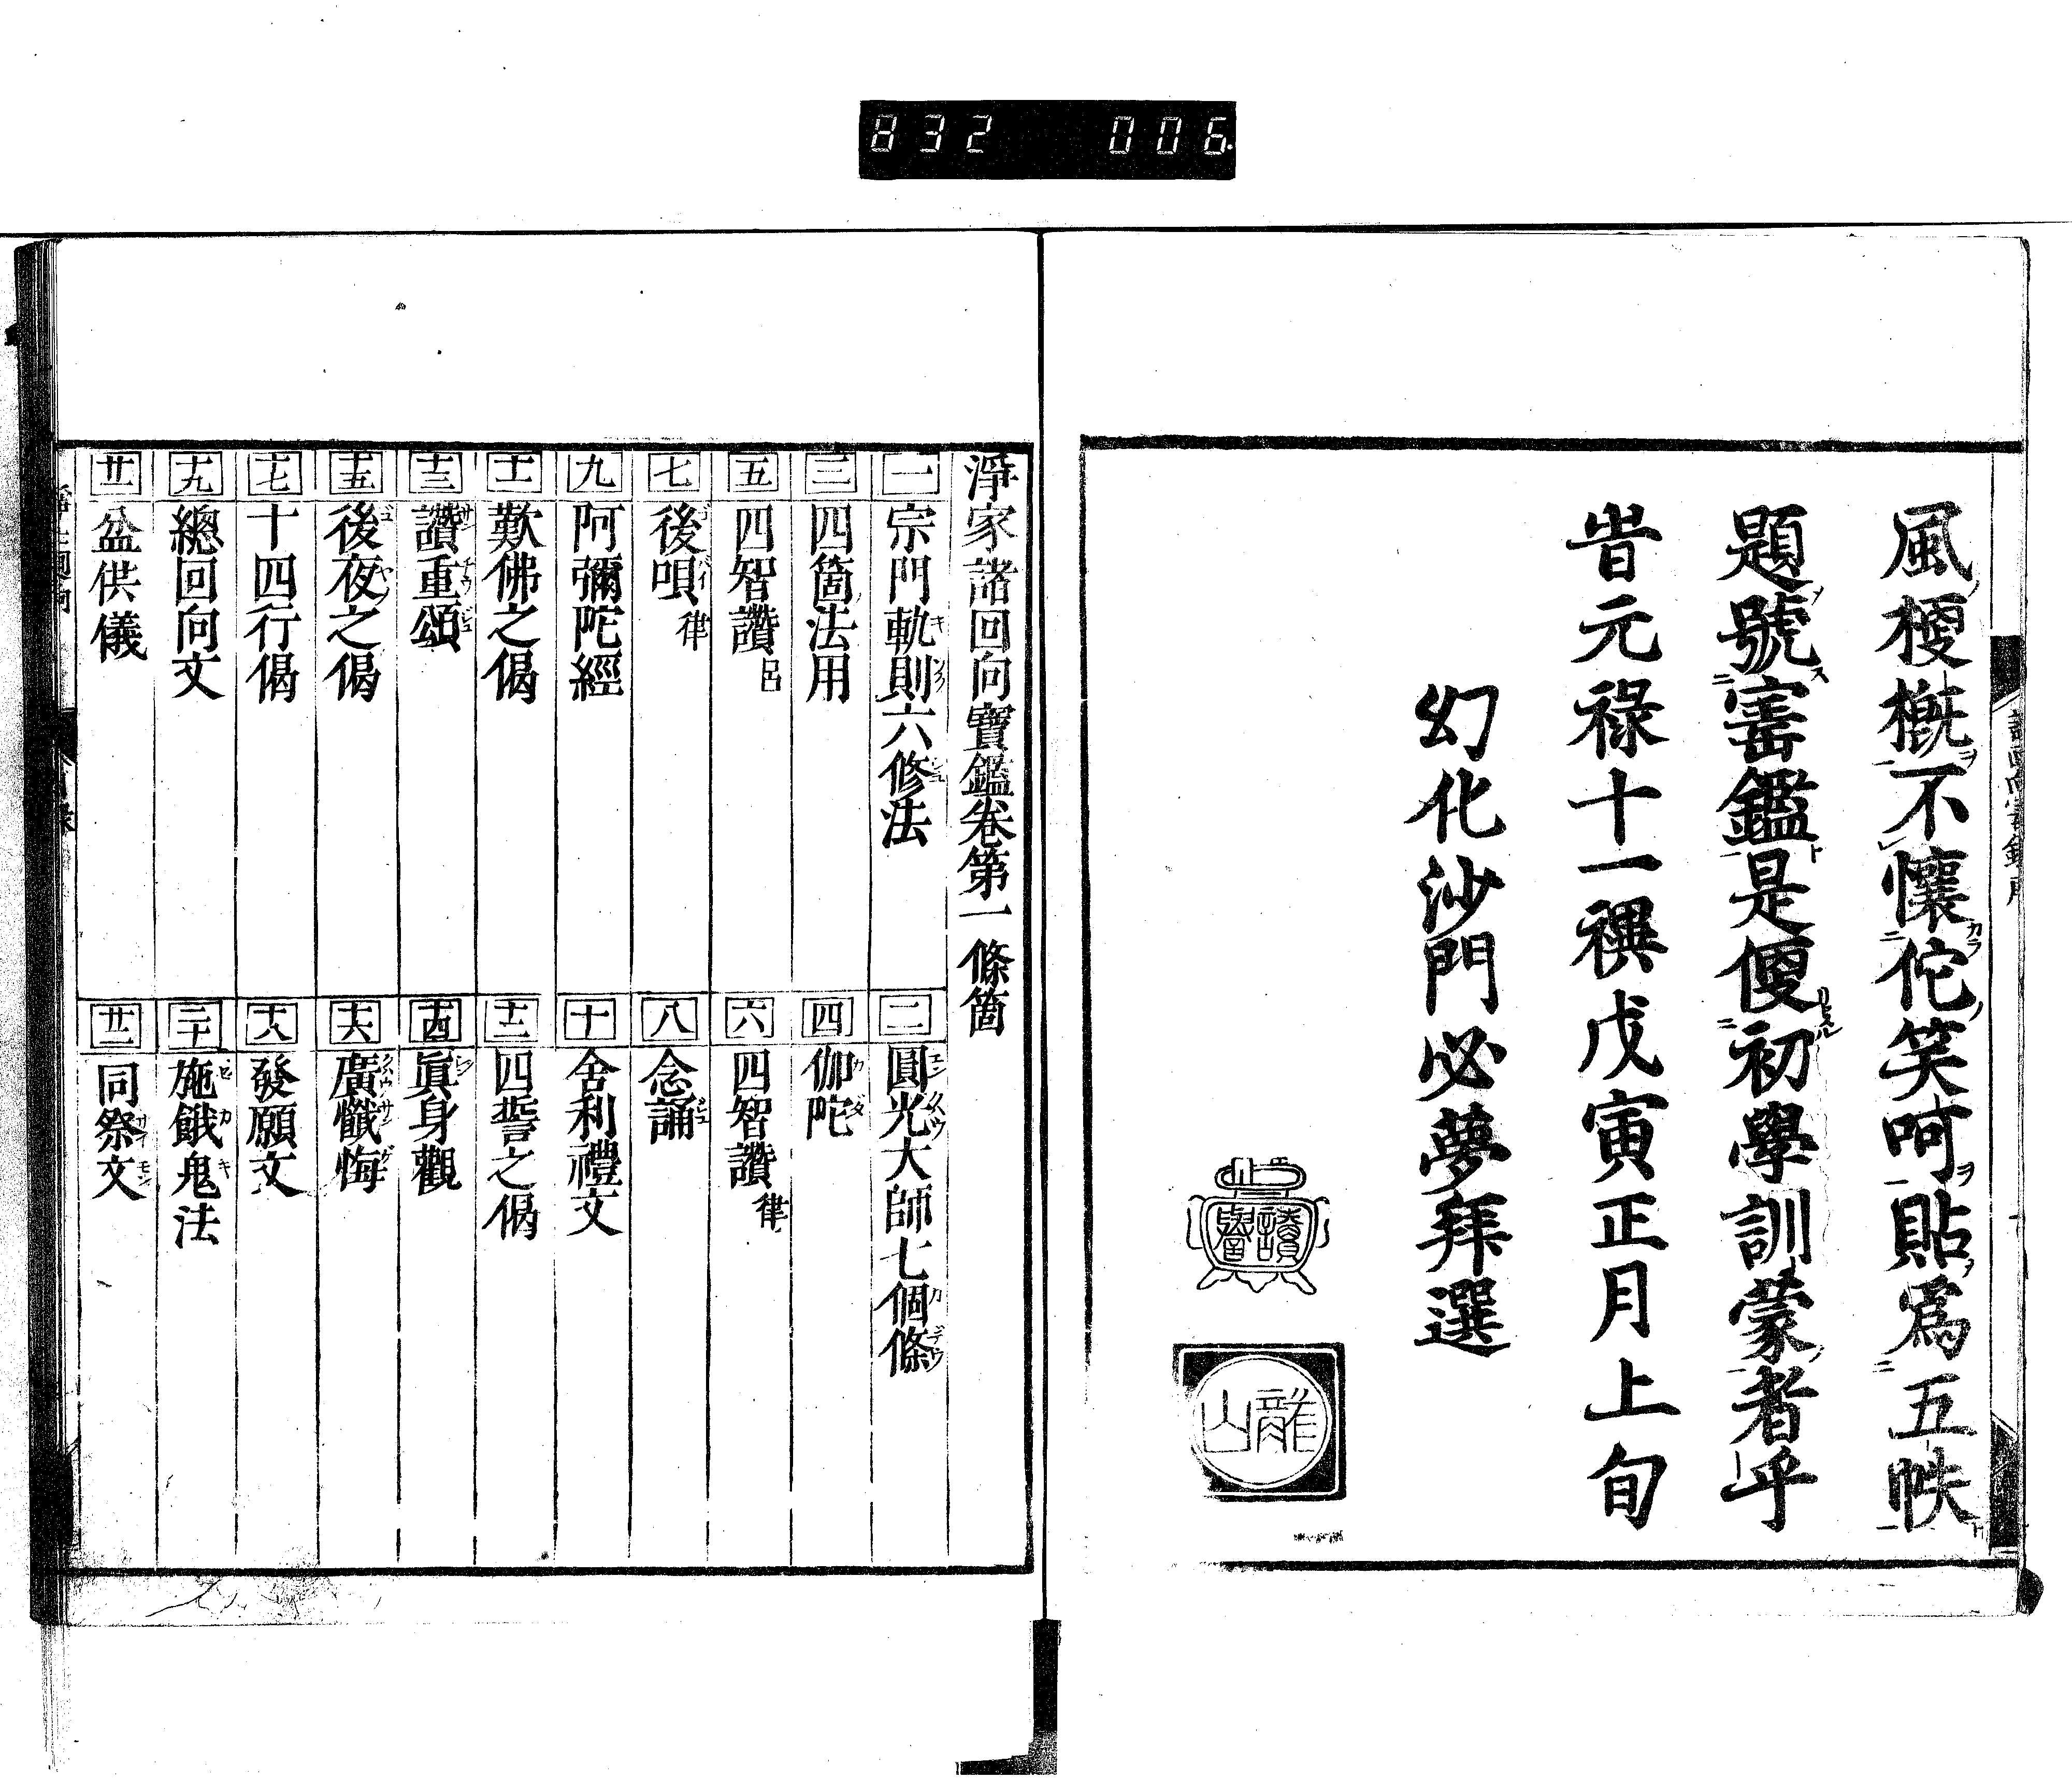 832 006
風梗概不懷佗笑呵貼爲五帙
題號寚鑑是便初學訓蒙者乎
旹元祿十一禩戊寅正月上旬
幻化沙門必夢拜選
讃譽
龍山
淨家諸回向寶鑑卷第一條箇
一 宗門軌則六修法
二 圓光大師七個條
三 四箇法用
四 伽陀
五 四智讚 呂
六 四智讚 律
七 後唄 律
八 念誦
九 阿彌陀經
十 舍利禮文
十一 歎佛之偈
十二 四誓之偈
十三 讚重頌
十四 眞身觀
十五 後夜之偈
十六 廣懺悔
十七 十四行偈
十八 發願文
十九 總回向文
二十 施餓鬼法
廿一 盆供儀
廿二 同祭文